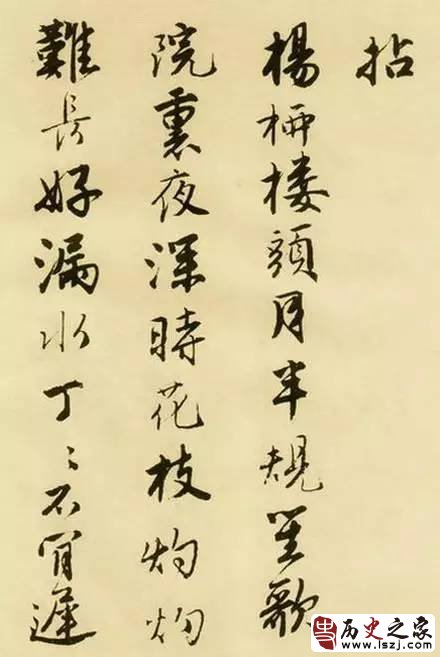 拈
楊柳楼頭月半規笙歌
院裏夜深時花枝灼灼
難長好漏水丁〻不肯遲
历史之家
www.lszj.com